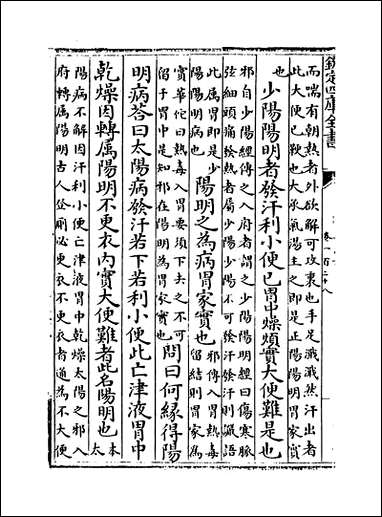 欽定四庫全書
卷一百二十八
而喘有朝熱者外欲解可攻裏也手足濈濈然汗出者
此大便已鞕也大承氣湯主之即是正陽陽明胃家實
也
少陽陽明者發汗利小便已胃中燥煩實大便難是也
邪自少陽經傳之入府者謂之少陽陽明經曰傷寒脈
弦細頭痛發熱者屬少陽少陽不可發汗發汗則譫語
此屬胃即是少
陽陽明病也
陽明之為病胃家實也
邪傳入胃熱毒
留結則胃家為
實華佗曰熱毒入胃要須下去之不可
留于胃中是知邪在陽明為胃家實也
問曰何緣得陽
明病答曰太陽病發汗若下若利小便此亡津液胃中
乾燥因轉屬陽明不更衣内實大便難者此名陽明也
本
太
陽病不解因汗利小便亡津液胃中乾燥太陽之邪入
府轉屬陽明古人登廁必更衣不更衣者通為不大便